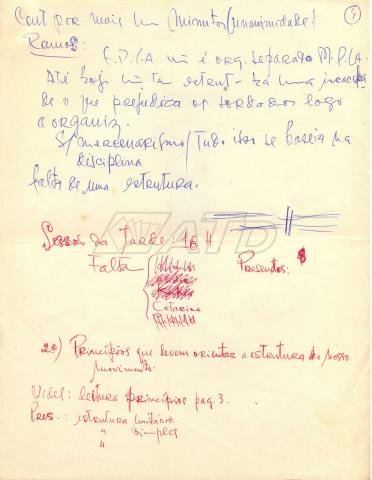 Cont por mais um minutos (unanimidade) 4
Ramos:
E.D.I.A. não é org. separata M.P.L.A.
Até hoje não tem estrut - há uma incapacida-
de o que prejudica os soldados logo
a organiz.
S/ mercenarismo / Tudo isto se baseia na
disciplina
falta de uma estrutura.
ATD
Sessão da Tarde: 16 H
Falta Presentes: 8
Catarino
2º) Princípios que devem orientar a estrutura do nosso
movimento.
Videl: leitura princípios pag. 3.
Pres.: estrutura unitária
" simples
"